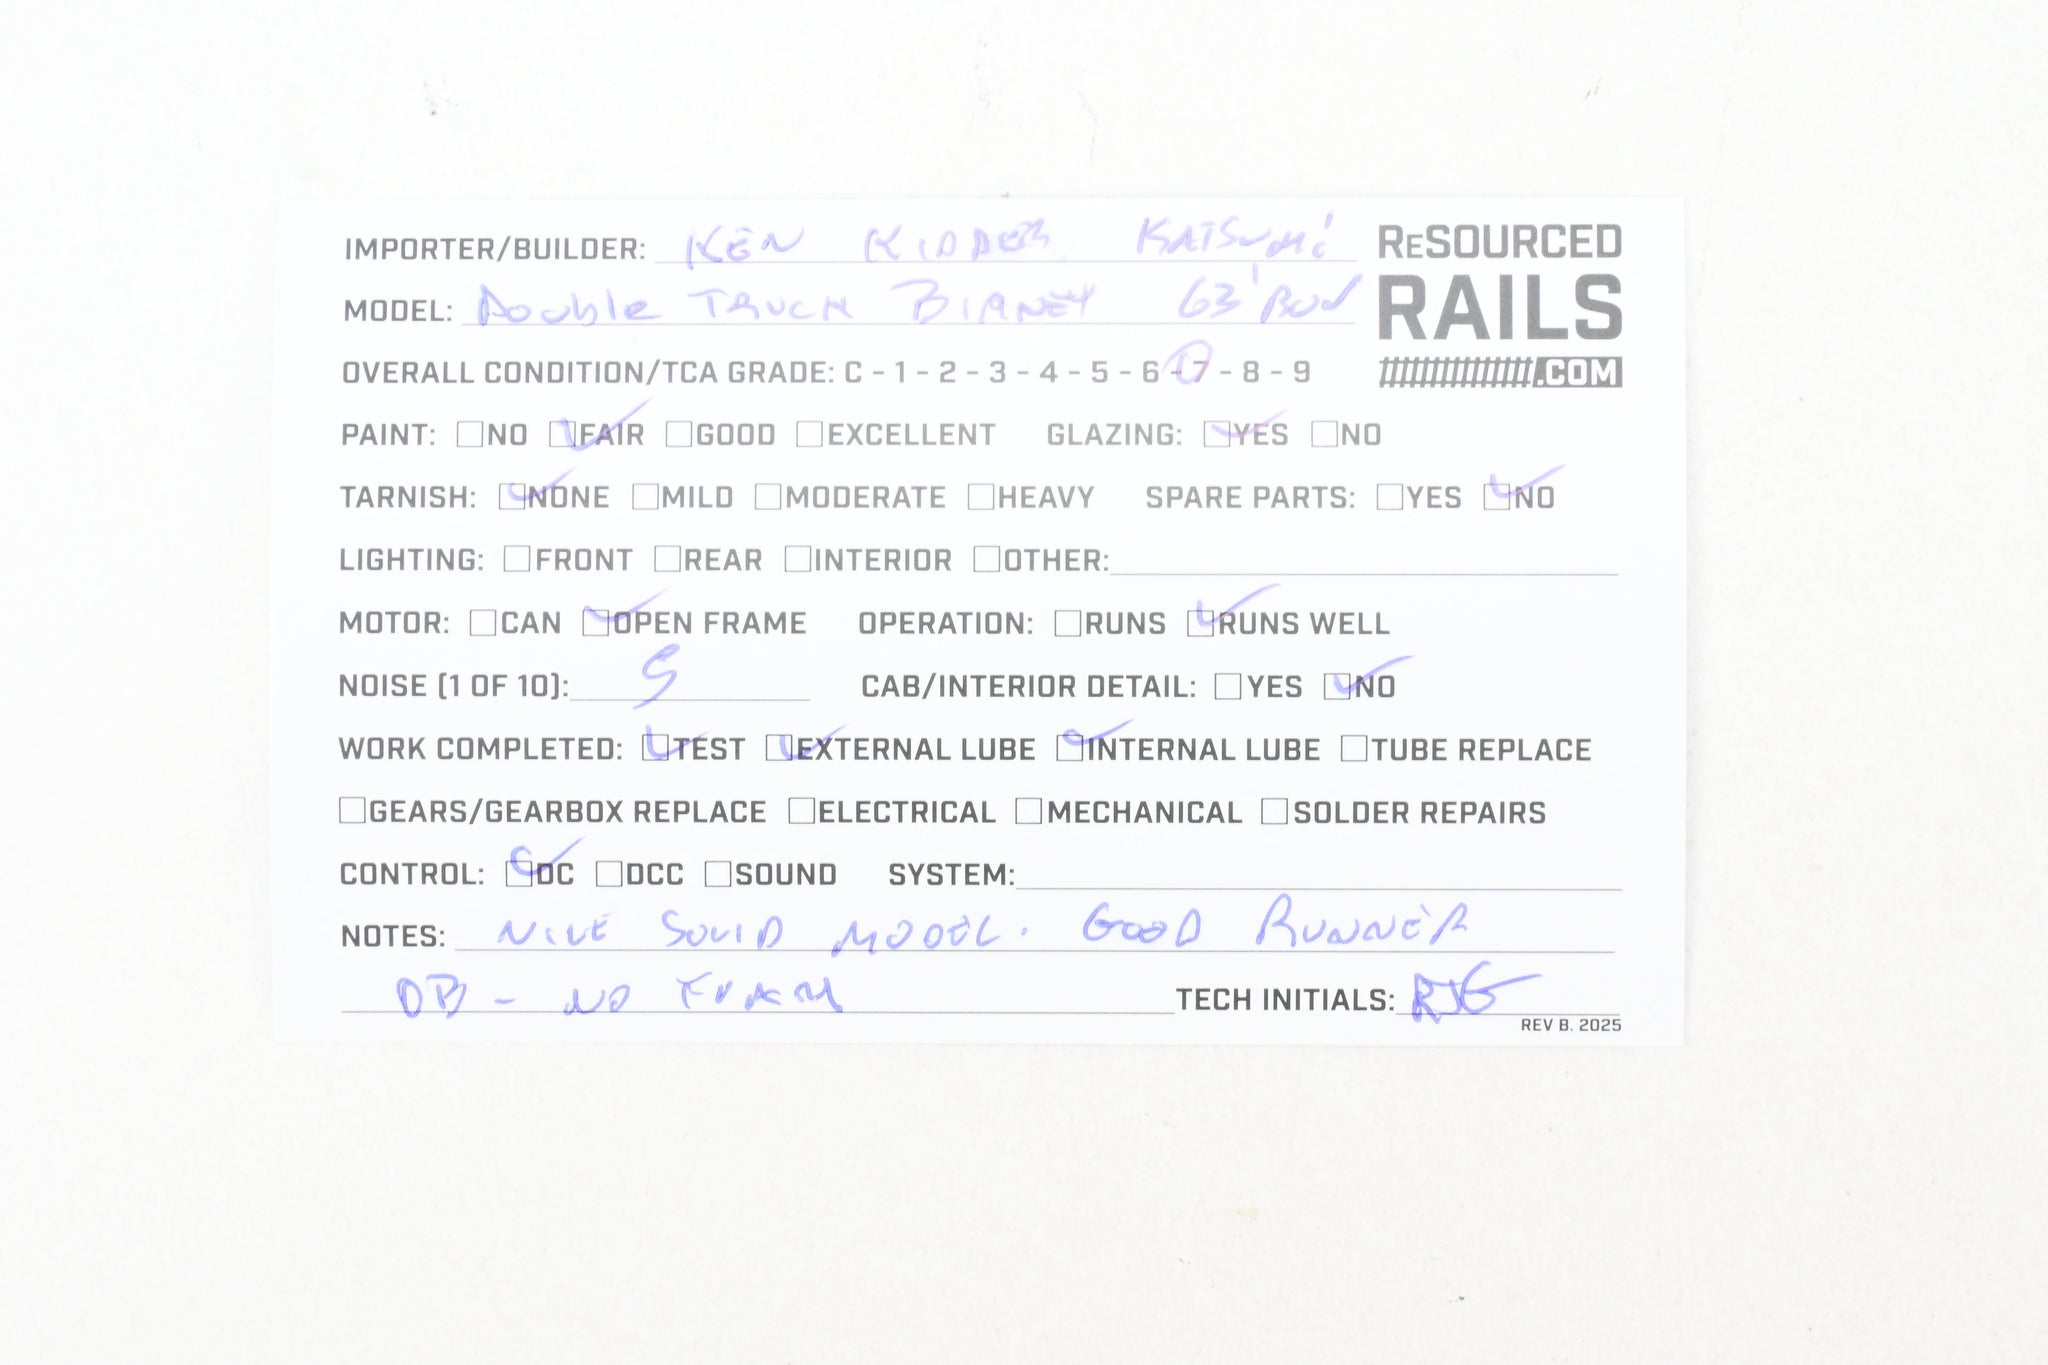 IMPORTER/BUILDER: KEN KIDDER KATSUMI
ReSOURCED
RAILS
.COM
MODEL: Double TRUCK BIRNEY 63'
OVERALL CONDITION/TCA GRADE: C - 1 - 2 - 3 - 4 - 5 - 6 - 7 - 8 - 9
PAINT: ☐NO ☑FAIR ☐GOOD ☐EXCELLENT GLAZING: ☑YES ☐NO
TARNISH: ☑NONE ☐MILD ☐MODERATE ☐HEAVY SPARE PARTS: ☐YES ☑NO
LIGHTING: ☐FRONT ☐REAR ☐INTERIOR ☐OTHER:
MOTOR: ☐CAN ☑OPEN FRAME OPERATION: ☐RUNS ☑RUNS WELL
NOISE (1 OF 10): 5 CAB/INTERIOR DETAIL: ☐YES ☑NO
WORK COMPLETED: ☑TEST ☑EXTERNAL LUBE ☑INTERNAL LUBE ☐TUBE REPLACE
☐GEARS/GEARBOX REPLACE ☐ELECTRICAL ☐MECHANICAL ☐SOLDER REPAIRS
CONTROL: ☑DC ☐DCC ☐SOUND SYSTEM:
NOTES: NICE SOLID MODEL. GOOD RUNNER
OB - NO FOAM TECH INITIALS: RJG
REV B. 2025